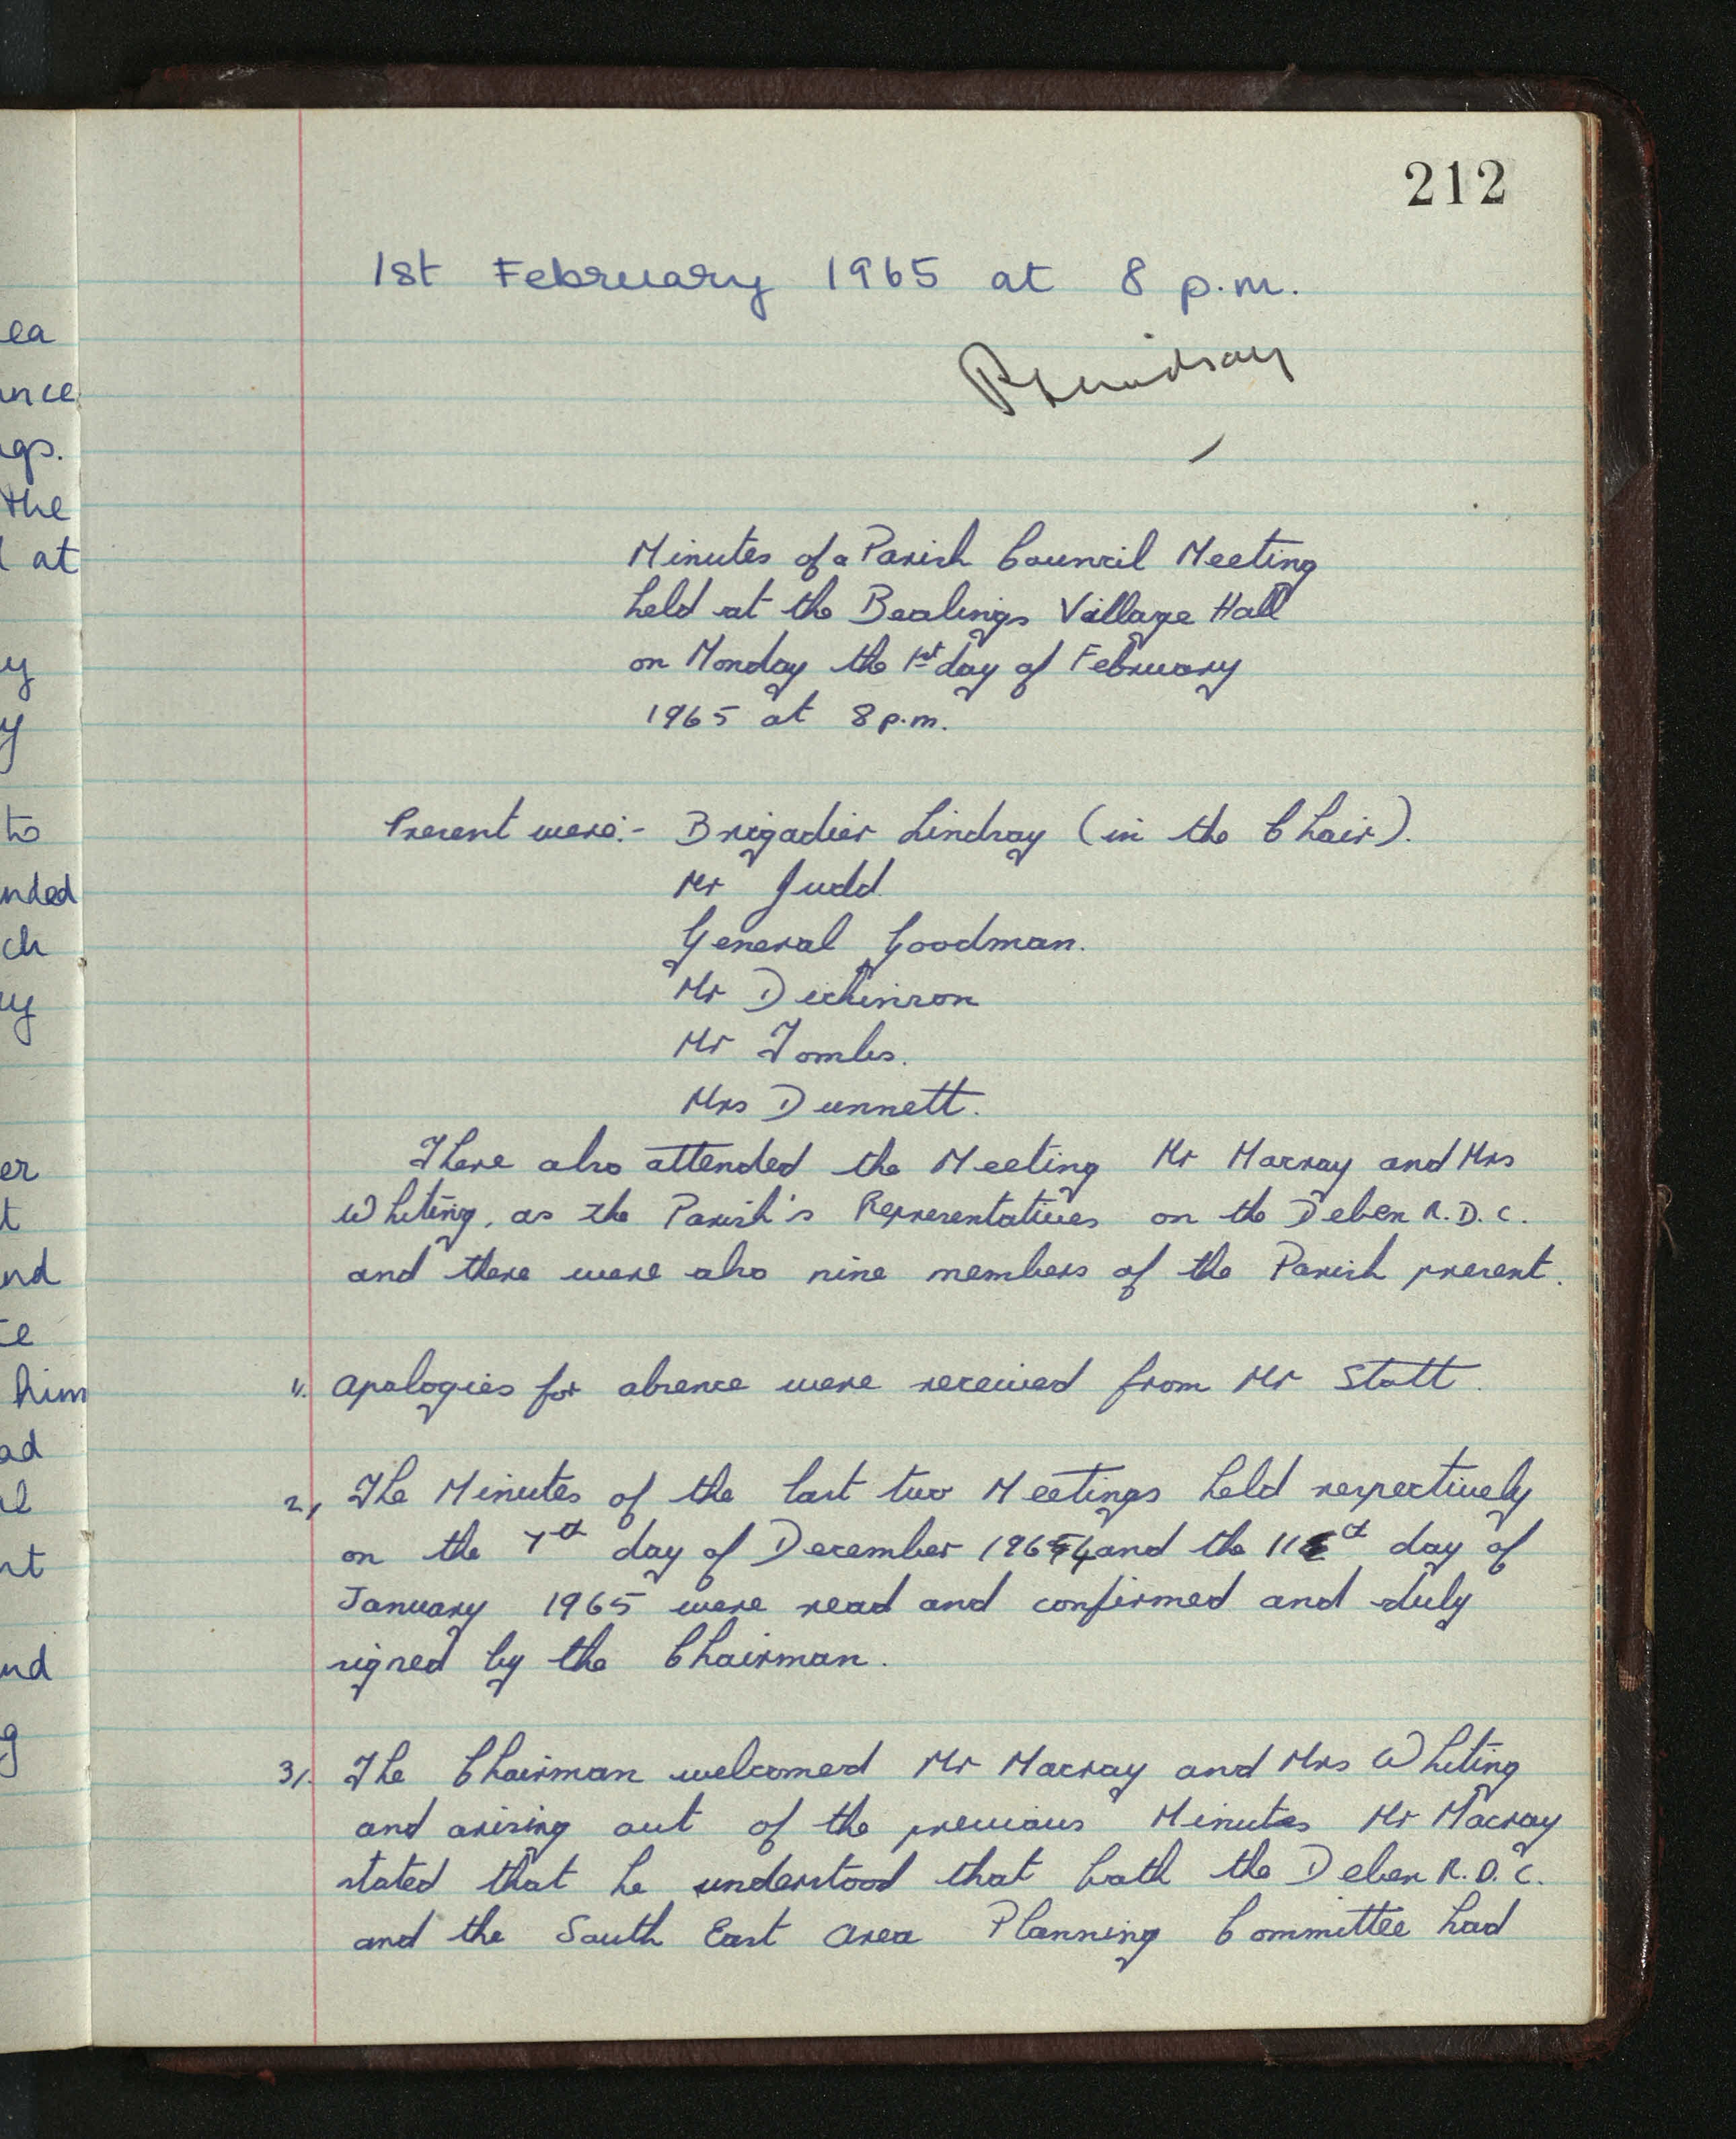 212
1st February 1965 at 8 p.m.
PLindsay
Minutes of a Parish Council Meeting
held at the Bealings Village Hall
on Monday the 1st day of February
1965 at 8 p.m.
Present were:- Brigadier Lindsay (in the Chair).
Mr Judd
General Goodman.
Mr Dickinson
Mr Tombs.
Mrs Dunnett.
There also attended the Meeting Mr Macray and Mrs
Whiting, as the Parish's Representatives on the Deben R.D.C.
and there were also nine members of the Parish present.
1/. Apologies for absence were received from Mr Stott.
2/. The Minutes of the last two Meetings held respectively
on the 7th day of December 1964 and the 11th day of
January 1965 were read and confirmed and duly
signed by the Chairman.
3/. The Chairman welcomed Mr Macray and Mrs Whiting
and arising out of the previous Minutes Mr Macray
stated that he understood that both the Deben R.D.C.
and the South East Area Planning Committee had
ea
ance
ngs.
the
at
y
y
to
nded
ch
uy
er
t
nd
te
him
ad
al
nt
nd
g